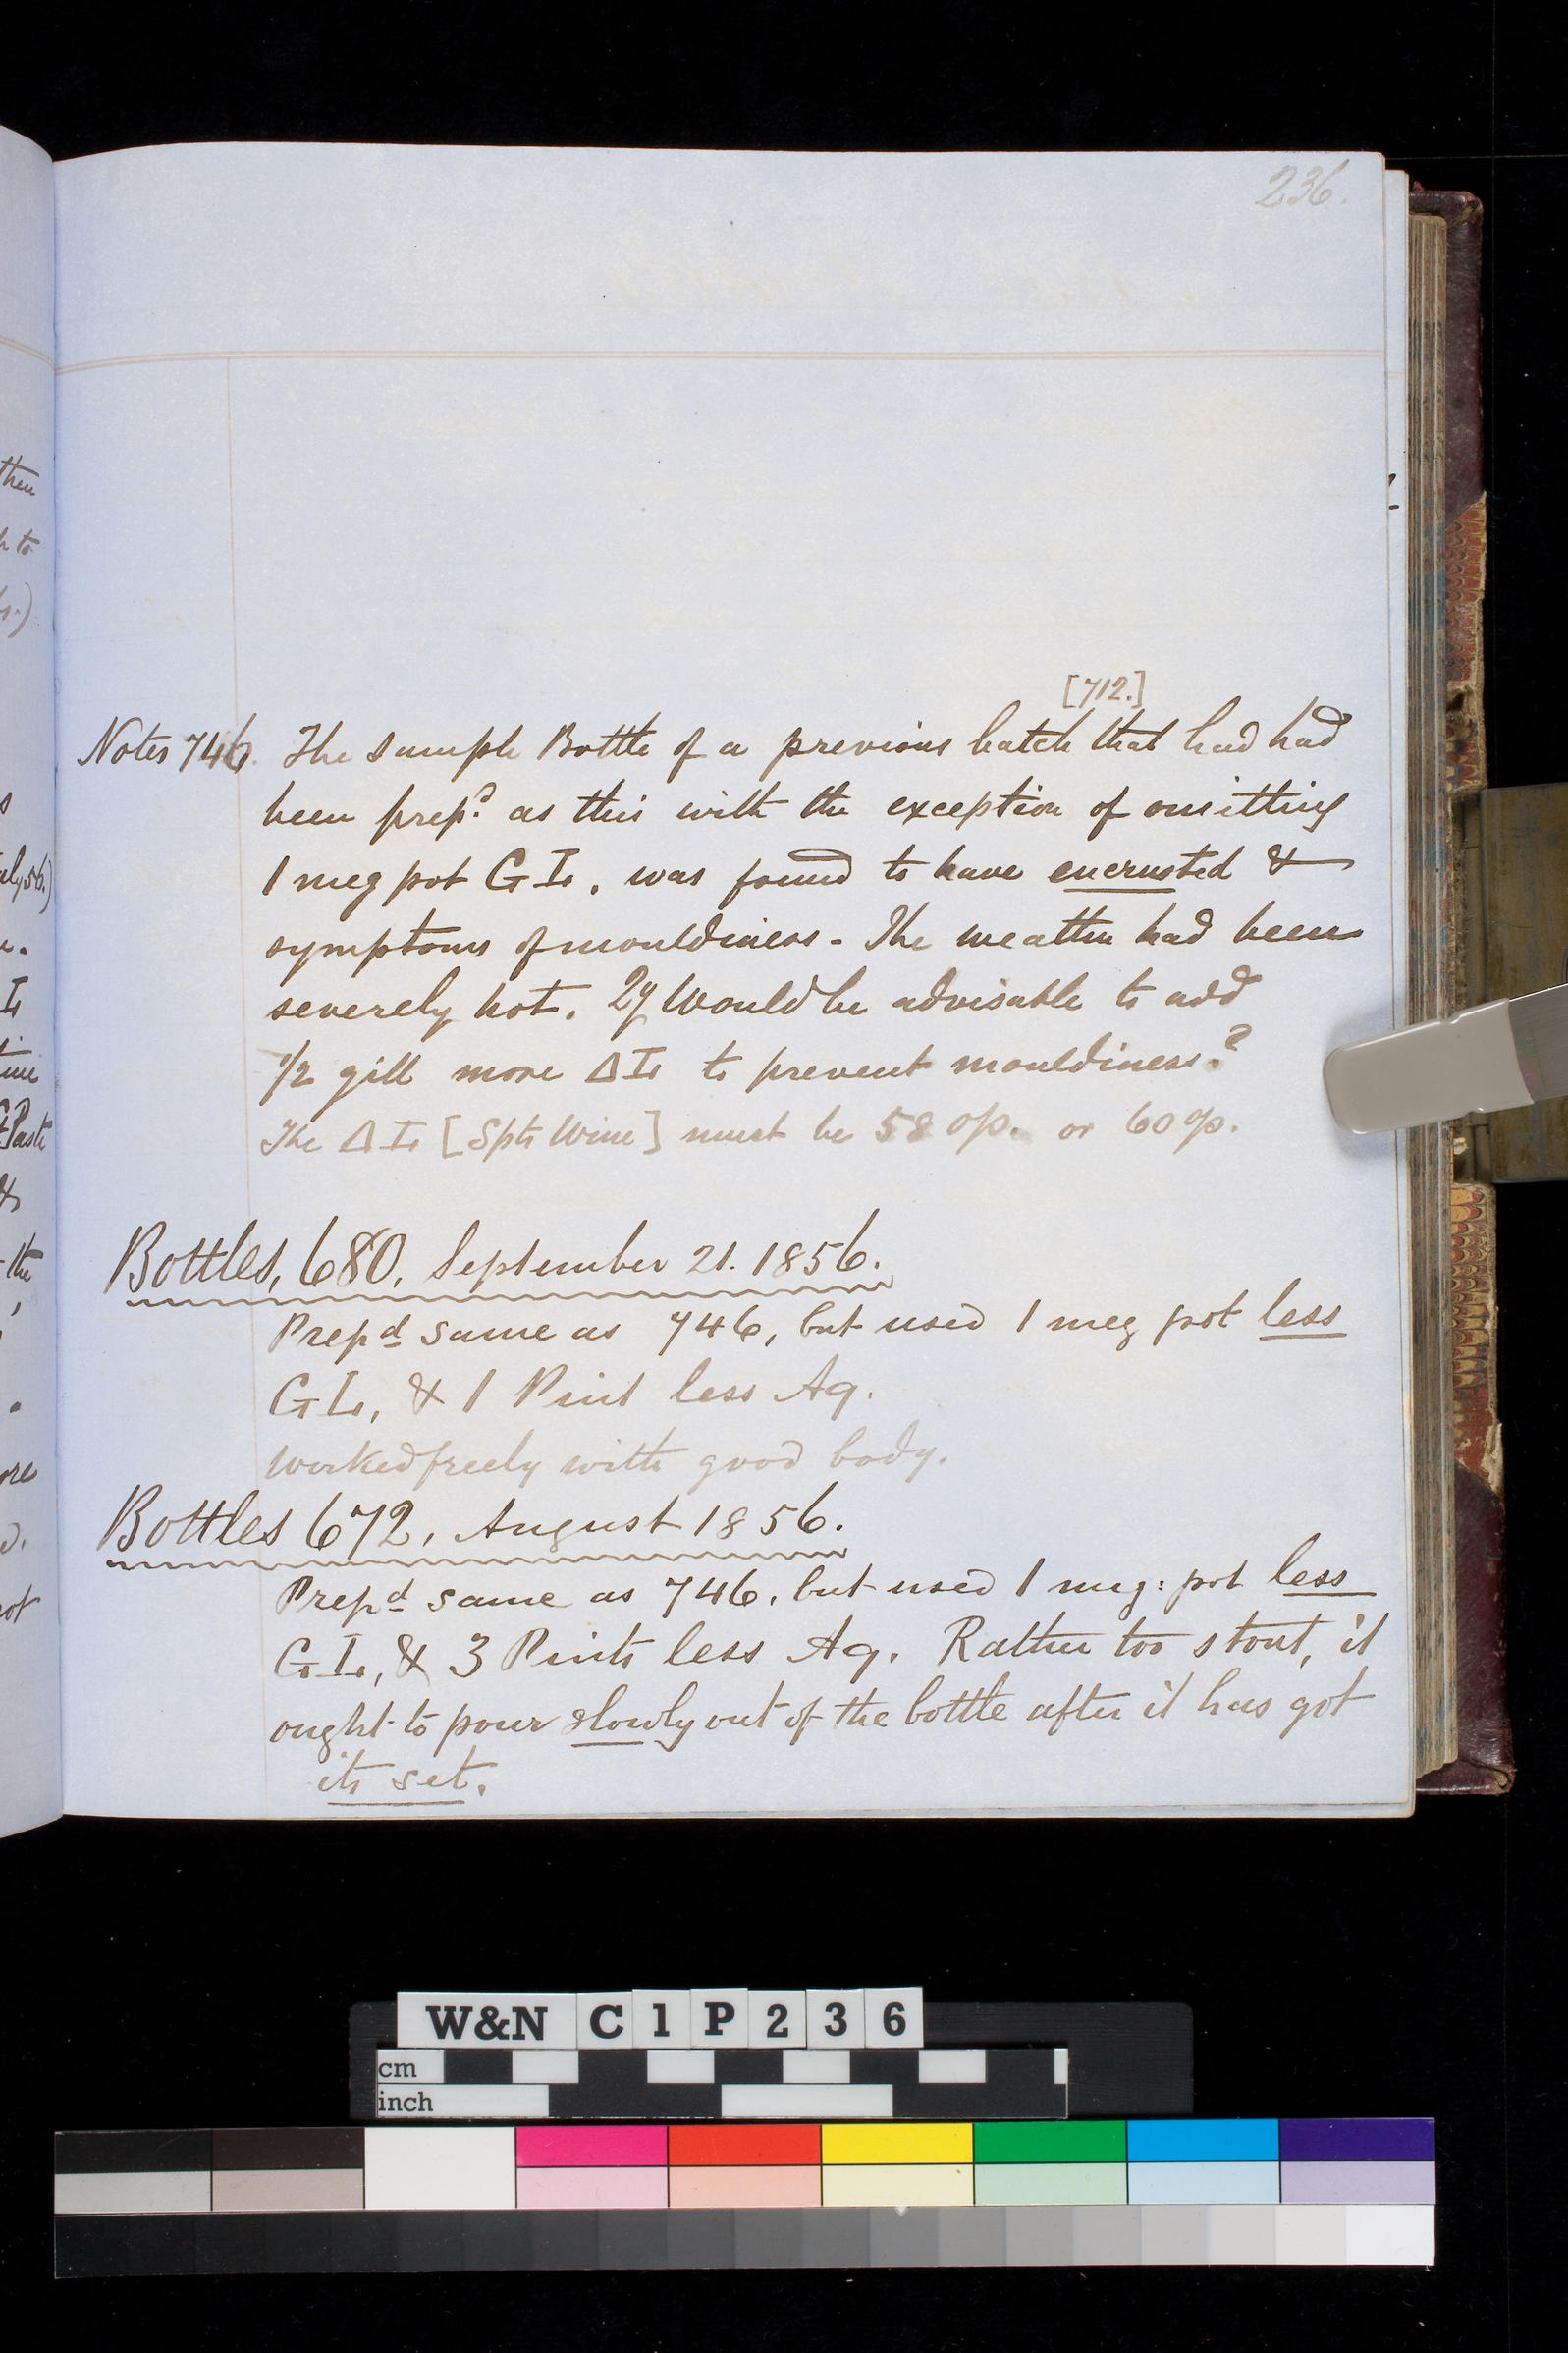 236.
[712.]
Notes 746. The sample Bottle of a previous batch that had had
been prepd. as this with the exception of omitting
1 meg pot G I, was found to have encrusted &
symptoms of mouldiness - The weather had been
severely hot. Qy Would be advisable to add
1/2 gill more Δ I to prevent mouldiness.?
The Δ I [Spts Wine] must be 58 op. or 60 op.
Bottles, 680, September 21. 1856.
Prepd same as 746, but used 1 meg pot less
G I, & 1 Pint less Aq.
Worked freely with good body.
Bottles 672, August 1856.
Prepd same as 746, but used 1 meg: pot less
G I, & 3 Pints less Aq. Rather too stout, it
ought to pour slowly out of the bottle after it has got
its set.
then
to
Paste
&
the
W&N C1P236
cm
inch